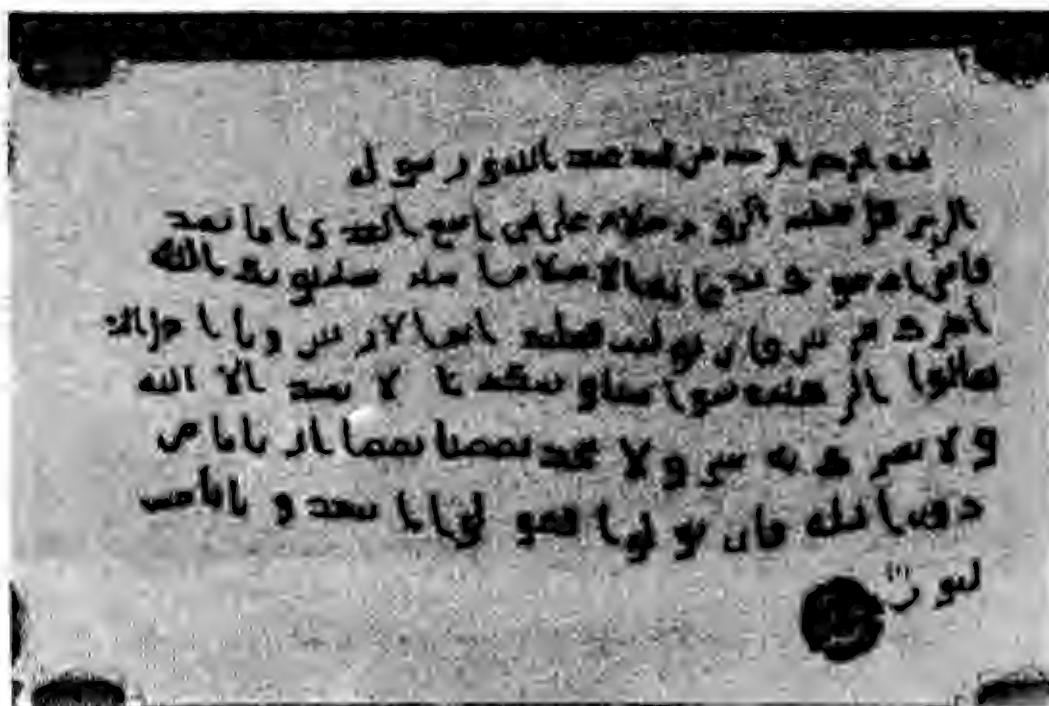 الله الرحمن الرحيم من محمد عبد الله و رسوله
هرقل عظيم الروم سلام على من اتبع الهدى اما بعد
فانى ادعوك بدعاية الاسلام اسلم تسلم يوتك الله
اجرك مرتين فان توليت فعليك اثم الاريسين ويا اهل
تعالوا الى كلمة سوا بيننا وبينكم الا نعبد الا الله
ولا نشرك به شيئا ولا يتخذ بعضنا بعضا اربابا من
دون الله فان تولوا فقولوا اشهدوا بانا مس
لمون (١)